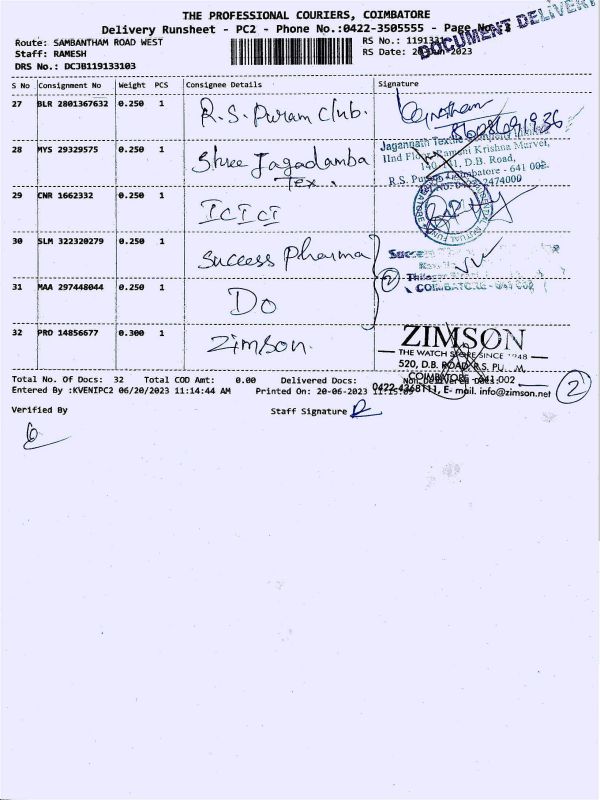 THE PROFESSIONAL COURIERS, COIMBATORE
Delivery Runsheet - PC2 - Phone No.:0422-3505555 - Page
DOCUMENT DELIVERY
Route: SAMBANTHAM ROAD WEST
RS No.:
Staff: RAMESH
RS Date: 20-Jun-2023
DRS No.: DCJB119133103
S No Consignment No Weight PCS Consignee Details Signature
27 BLR 2801367632 0.250 1 R.S. Puram Club.
28 MYS 29329575 0.250 1 Shree Jagadamba
Tex.
Jagannath Textile
IInd Floor, Ramani Krishna Marvel,
D.B. Road,
R.S. Puram, Coimbatore - 641 002.
2474000
29 CNR 1662332 0.250 1 ICICI
30 SLM 322320279 0.250 1 Success Pharma
Success
COIMBATORE - 641 002
2
31 MAA 297448044 0.250 1 Do
32 PRO 14856677 0.300 1 Zimson.
ZIMSON
THE WATCH STORE SINCE 1948
520, D.B. ROAD, R.S. PURAM,
COIMBATORE - 641 002
0422-4368111, E- mail. info@zimson.net
2
Total No. Of Docs: 32 Total COD Amt: 0.00 Delivered Docs: Non Delivered Docs:
Entered By :KVENIPC2 06/20/2023 11:14:44 AM Printed On: 20-06-2023 11:15:09
Verified By Staff Signature